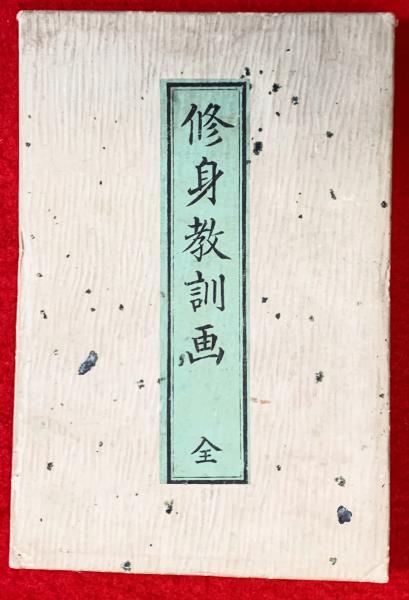 修身教訓画
全